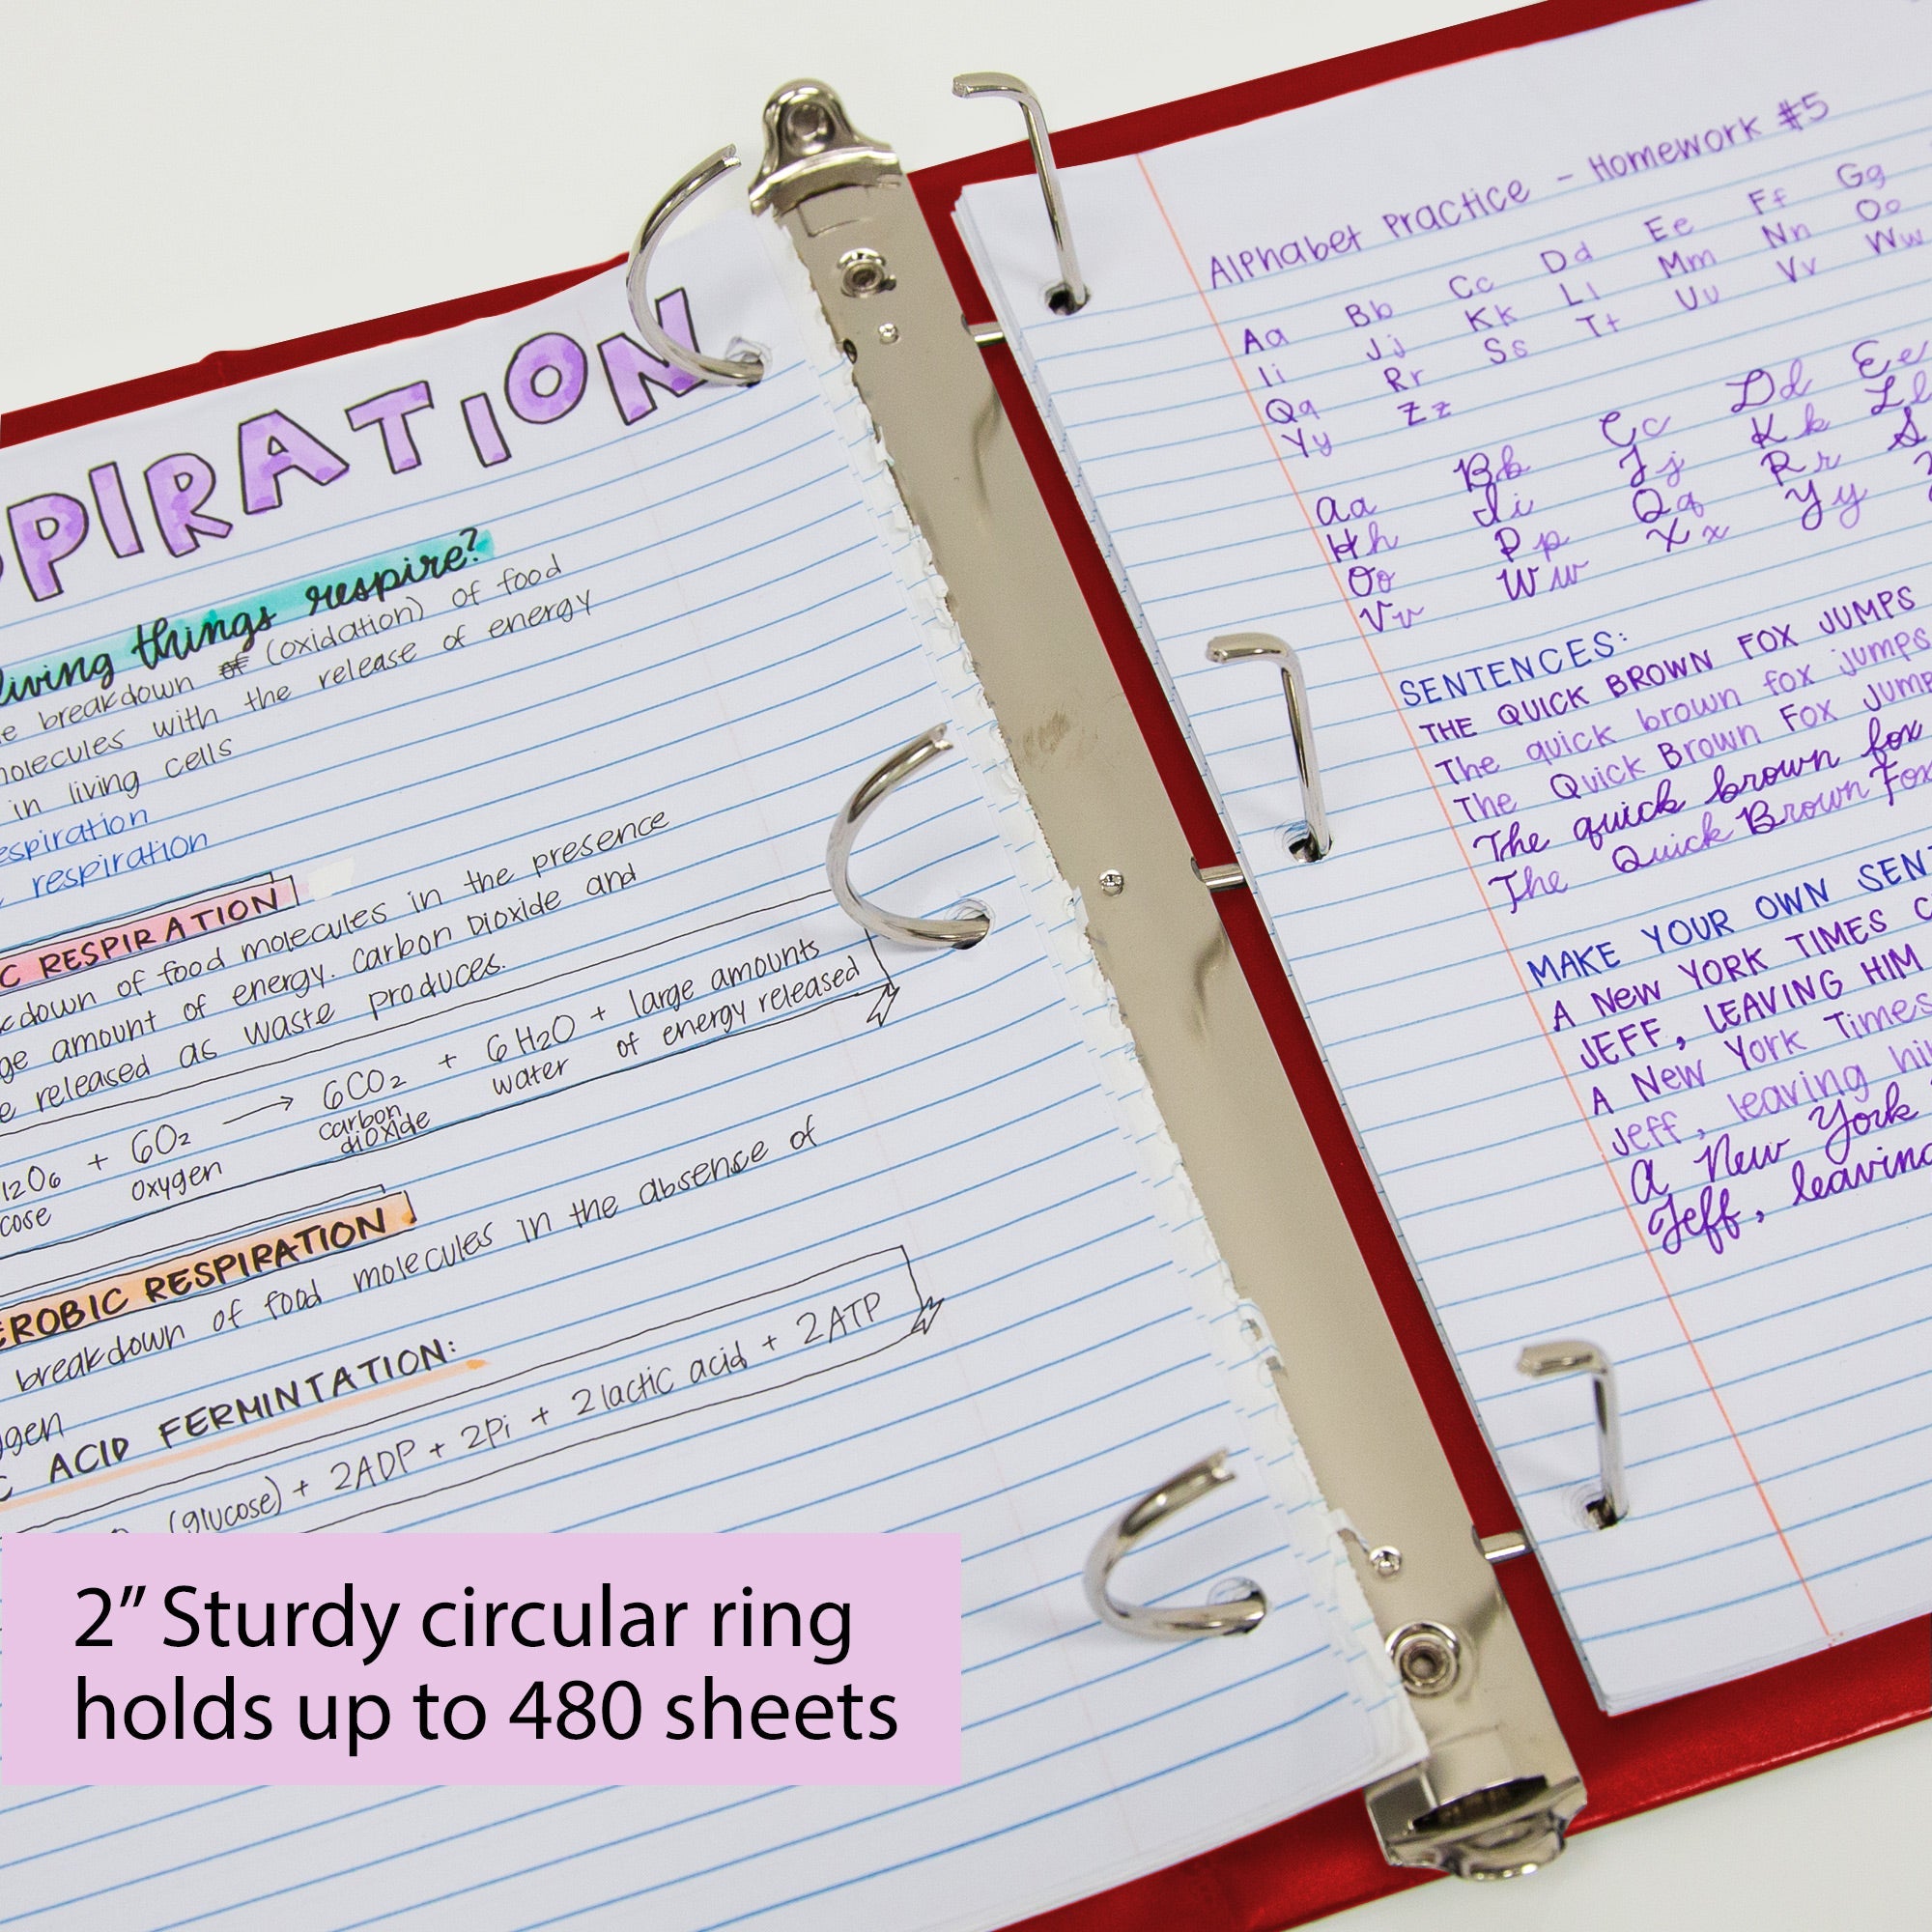 PIRATION
living things respire?
breakdown of (oxidation) of food
molecules with the release of energy
in living cells
respiration
respiration
C RESPIRATION
kdown of food molecules in the presence
ge amount of energy. Carbon Dioxide and
e released as waste produces.
12O6 + 6O2 → 6CO2 + 6H2O + large amounts
cose oxygen carbon dioxide water of energy released
EROBIC RESPIRATION
breakdown of food molecules in the absence of
ygen
C ACID FERMINTATION:
(glucose) + 2ADP + 2Pi + 2lactic acid + 2ATP
Alphabet Practice - Homework #5
Aa Bb Cc Dd Ee Ff Gg
Ii Jj Kk Ll Mm Nn Oo
Qq Rr Ss Tt Uu Vv Ww
Yy Zz
Aa Bb Cc Dd Ee
Hh Ii Jj Kk Ll
Oo Pp Qq Rr S
Vv Ww Xx Yy
SENTENCES:
THE QUICK BROWN FOX JUMPS
The quick brown fox jumps
The Quick Brown Fox Jump
The quick brown fox
The Quick Brown Fox
MAKE YOUR OWN SENT
A NEW YORK TIMES C
JEFF, LEAVING HIM
A New York Times
Jeff, leaving hi
A New York
Jeff, leaving
2” Sturdy circular ring
holds up to 480 sheets